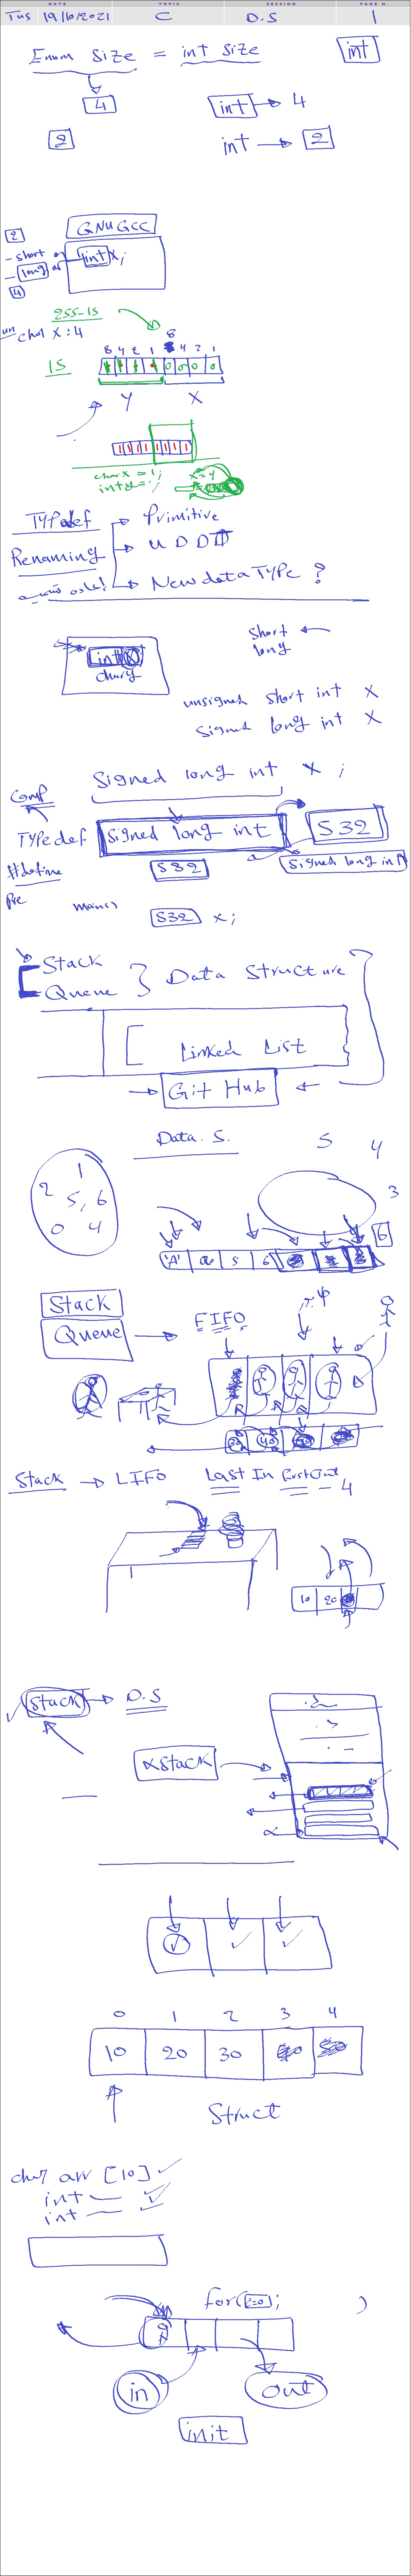 DATE TOPIC SESSION PAGE N.
Tus 19/10/2021 C D.S 1
Enum Size = int size int
4 int 4
2 int 2
GNU GCC
2
- short
- long int x;
4
255-15
un char x : 4
8
8 4 2 1 8 4 2 1
15 0 0 0 0
Y X
1 1 1 1 1 1 1 1
char x = 1; x=4
int y = ;
Typedef Primitive
Renaming U D D T
New data Type ?
short
int x long
char y
unsigned short int x
signed long int x
Comp Signed long int x ;
TYPedef signed long int S32
#define S32 signed long int
Pre
main()
S32 x;
Stack
Queue } Data Structure
[ Linked List
Git Hub
Data. S. 5 4
1
2 5, 6 3
0 4 6
'A' a 5 6
Stack
Queue FIFO
30 40
Stack LIFO Last In First Out
4
10 20
Stack D.S
Stack
0 1 2 3 4
10 20 30
Struct
char arr [10]
int
int
for(i=0);
in out
init